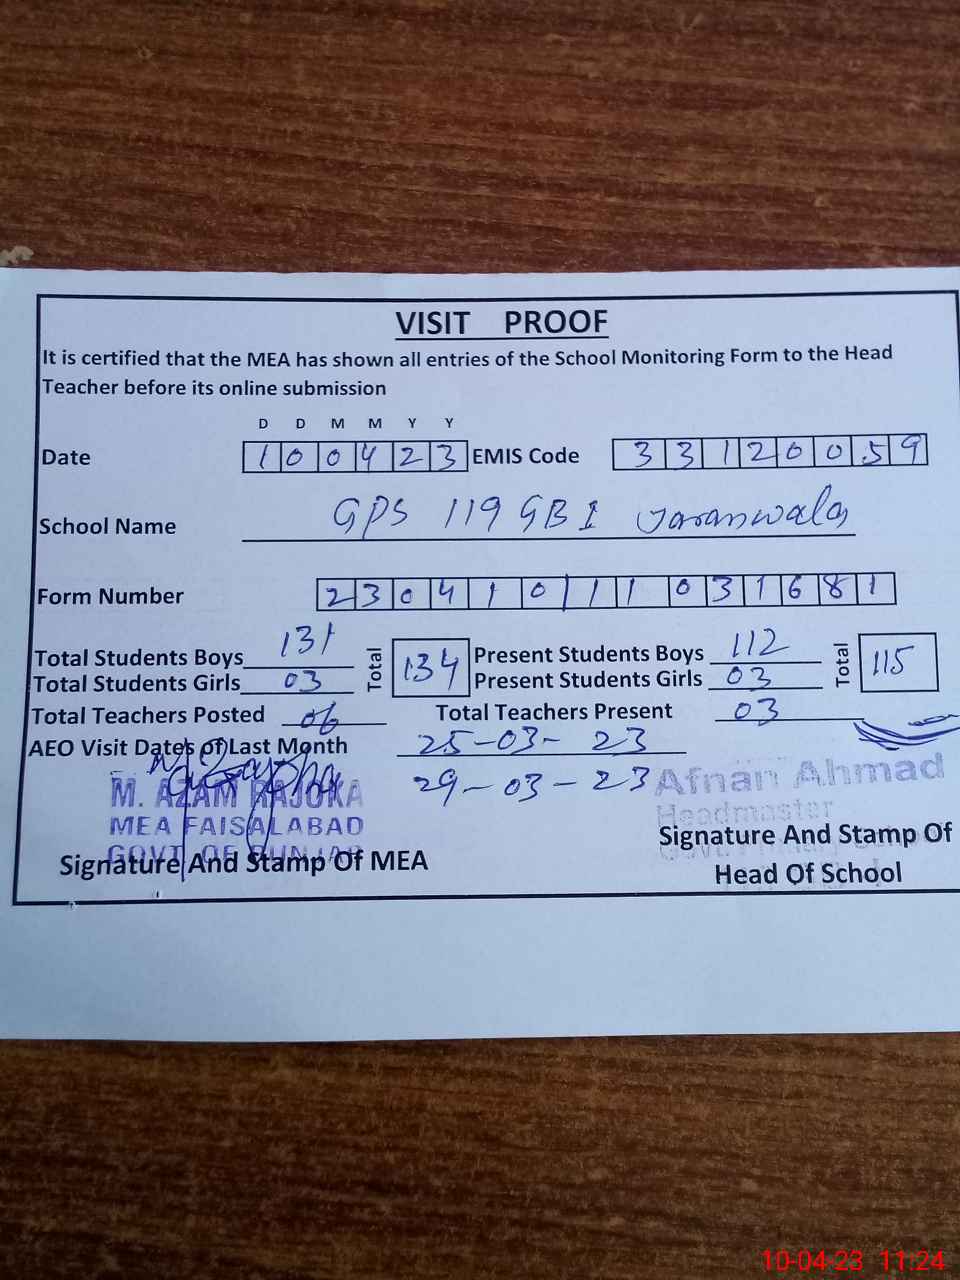 VISIT PROOF
It is certified that the MEA has shown all entries of the School Monitoring Form to the Head
Teacher before its online submission
D D M M Y Y
Date 100423 EMIS Code 33120059
School Name GPS 119 GB I Jaranwala
Form Number 23041011031681
Total Students Boys 131 Total 134 Present Students Boys 112 Total 115
Total Students Girls 03 Present Students Girls 03
Total Teachers Posted 06 Total Teachers Present 03
AEO Visit Dates of Last Month 25-03-23
29-03-23
M. AZAM RAJOKA Afnan Ahmad
MEA FAISALABAD Headmaster
GOVT OF PUNJAB
Signature And Stamp Of MEA Signature And Stamp Of
Head Of School
10-04-23 11:24